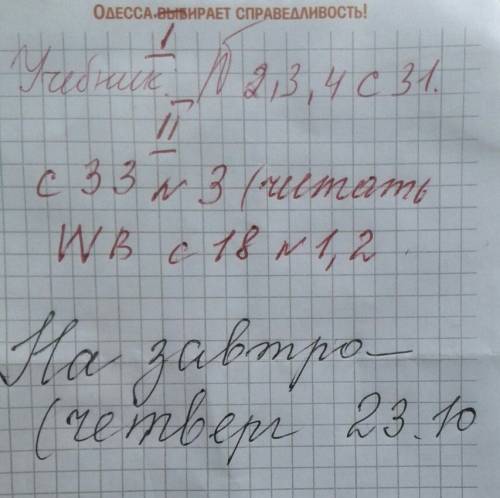 ОДЕССА ВЫБИРАЕТ СПРАВЕДЛИВОСТЬ!
I
Учебник. 2, 3, 4 с 31.
II
с 33 N 3 (читать
WB с 18 N 1, 2.
На завтро—
(четверг 23.10